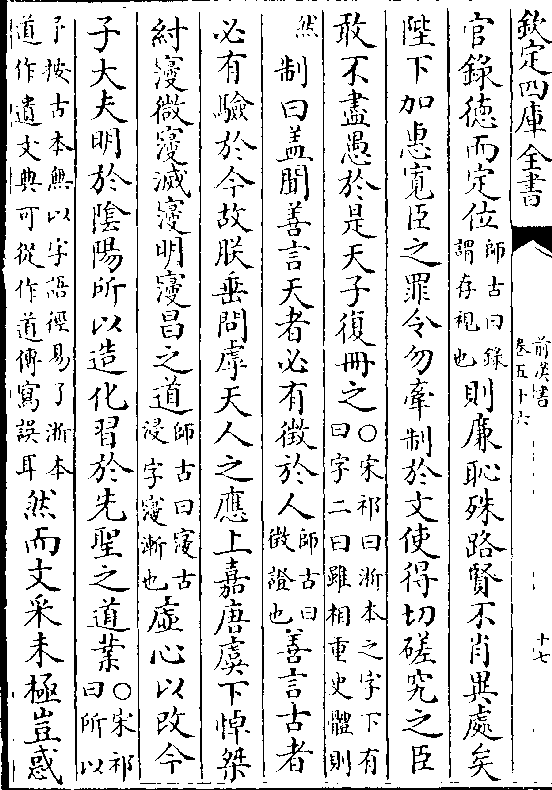 欽定四庫全書
前漢書
卷五十六
十七
官錄徳而定位師古曰錄謂存視也則廉恥殊路賢不肖異處矣
陛下加惠寛臣之罪令勿牽制於文使得切磋究之臣
敢不盡愚於是天子復冊之○宋祁曰浙本之字下有曰字二曰雖相重史體則
然制曰盖聞善言天者必有徴於人師古曰徴證也善言古者
必有驗於今故朕垂問虖天人之應上嘉唐虞下悼桀
紂寖微寖滅寖明寖昌之道師古曰寖古浸字寖漸也虛心以改今
子大夫明於陰陽所以造化習於先聖之道業○宋祁曰所以
予按古本無以字語徑易了浙本道作遺文典可從作道傳寫誤耳然而文采未極豈惑